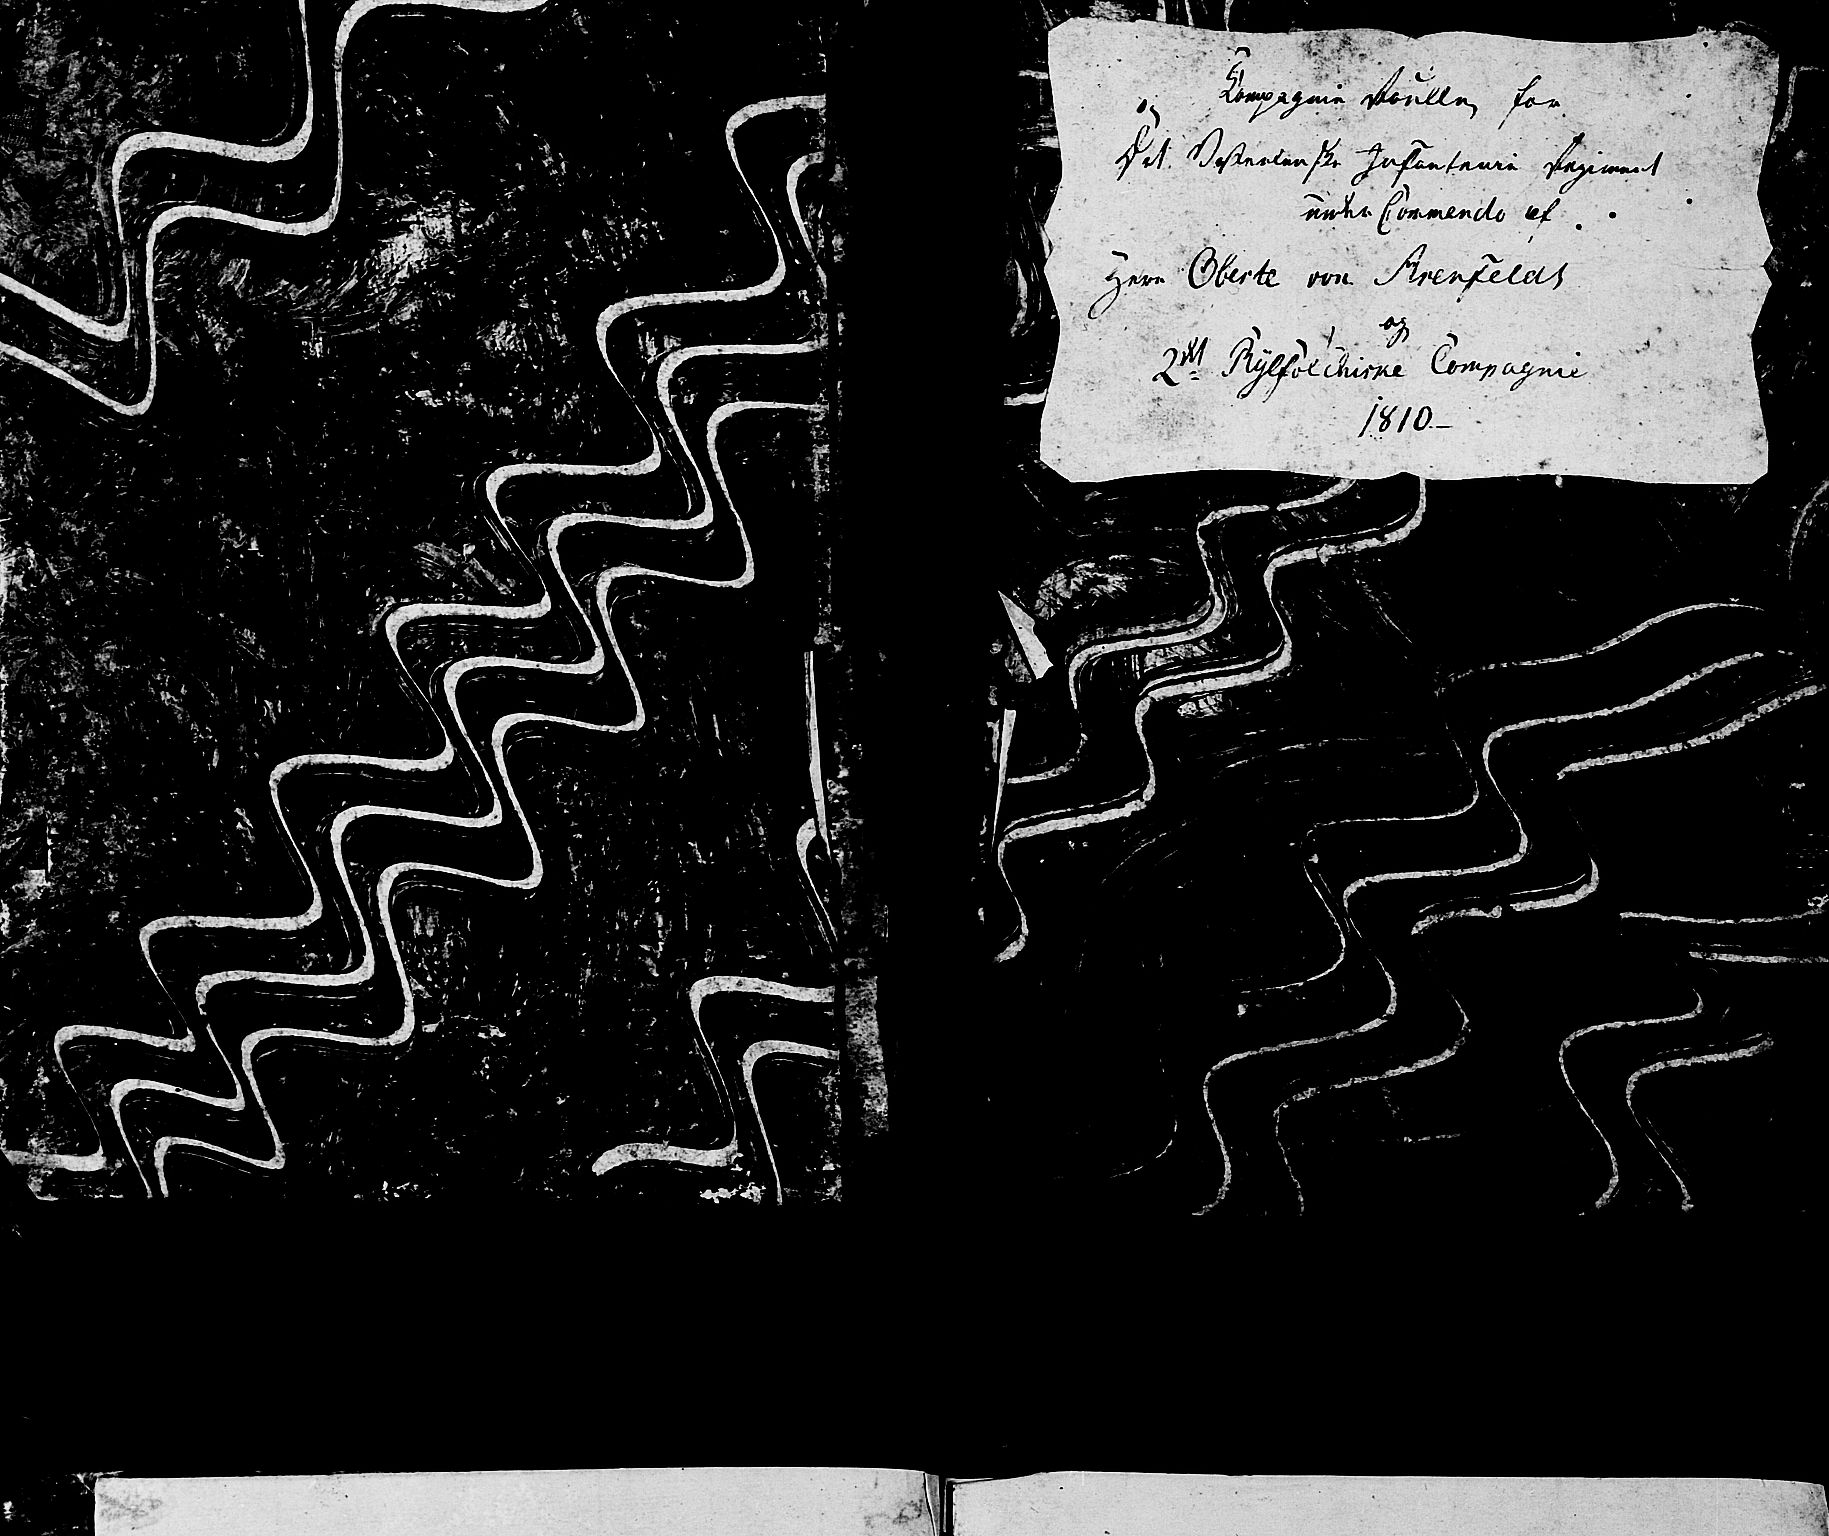 Compagnie Roulle, for
og
Det Vesterlenske Infanterie Regiment
under Commendo af
Herr Oberste von Arenfeldt
og
2det Ryfylchiske Compagnie
1810.-